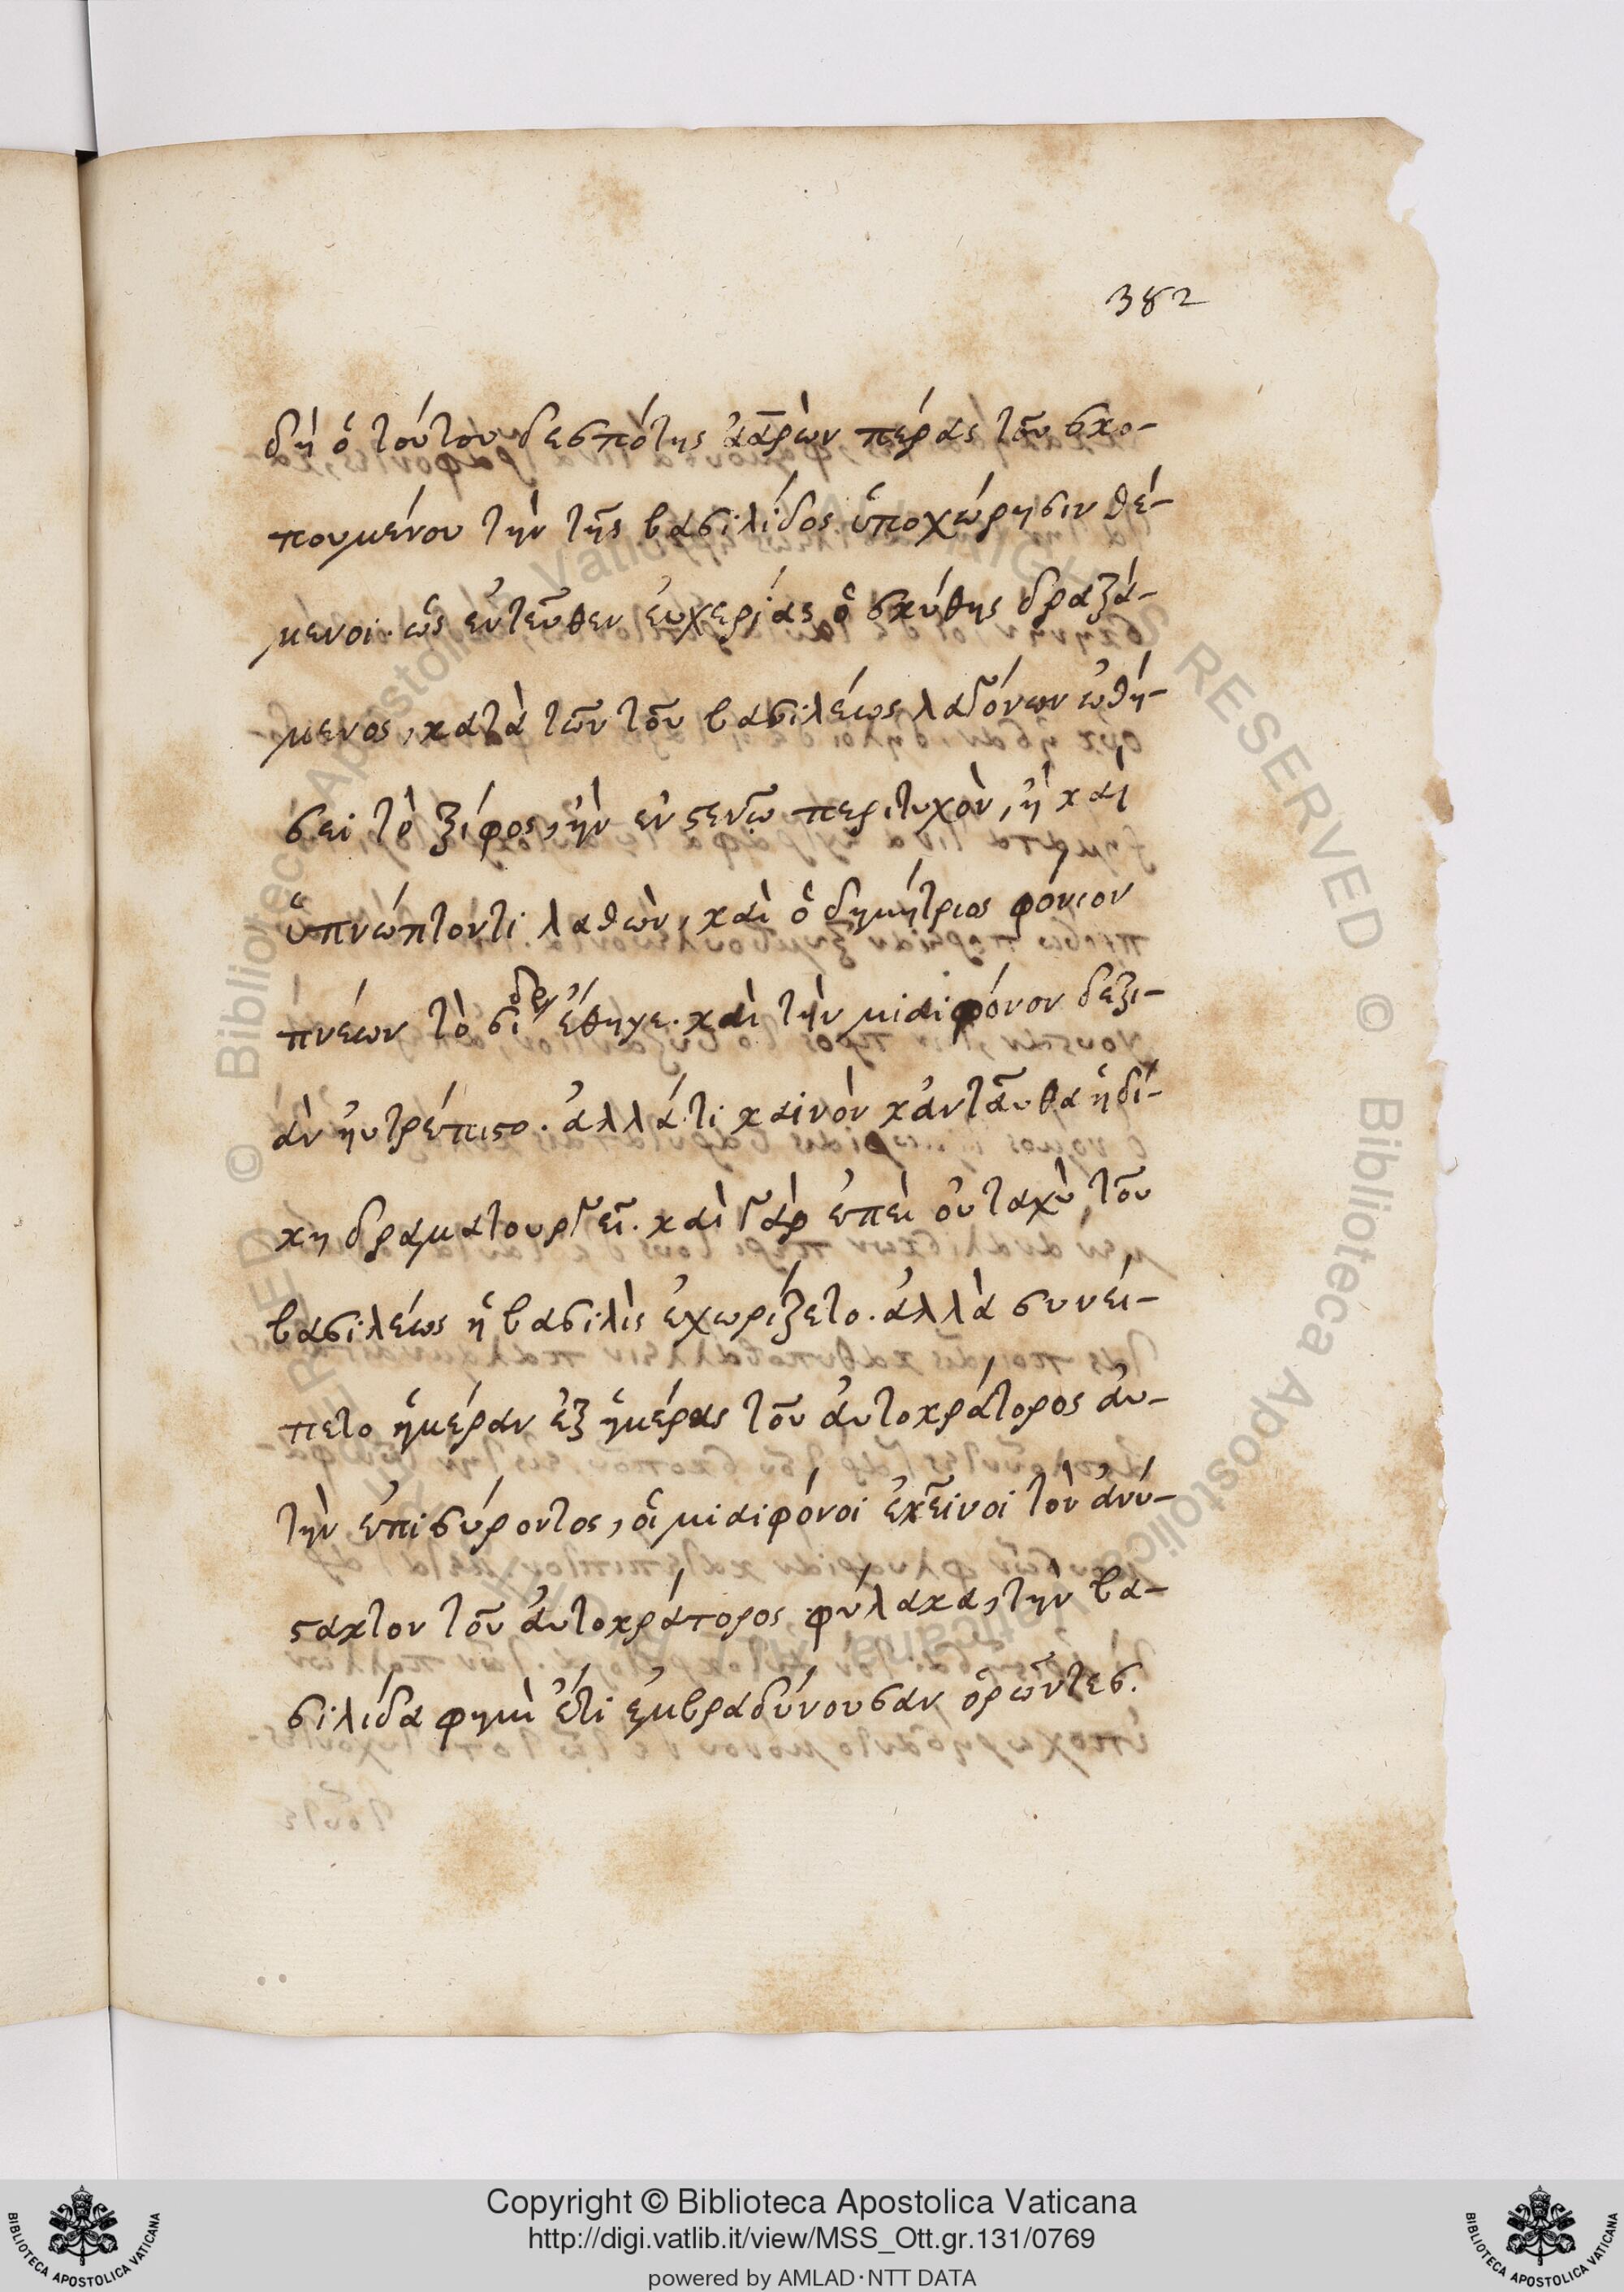 382
δὴ ὁ τούτου δεσπότης ἀαρὼν πέρας τοῦ σκο-
πουμένου τὴν τῆς βασιλίδος ὑποχώρησιν θέ-
μενοι. ὡς ἐντεῦθεν εὐχερίας ὁ σκύθης δραξά-
μενος, κατὰ τῶν τοῦ βασιλέως λαγόνων ὠθή-
σει τὸ ξίφος, ἢν ἐν στενῶ περιτυχὸν, ἢ καὶ
ὑπνώττοντι λαθὼν, καὶ ὁ δημήτριος φόνιον
πνέων τὸ σίδην ἔθηγε. καὶ τὴν μιαιφόνον δεξι-
ὰν ηὐτρέπιστο. ἀλλά τι καινὸν κἀνταῦθα ἡ δί-
κη δραματουργεῖ. καὶ γὰρ ἐπεὶ οὐ ταχὺ τοῦ
βασιλέως ἡ βασιλὶς ἐχωρίζετο. ἀλλὰ συνεί-
πετο ἡμέραν ἐξ ἡμέρας τοῦ αὐτοκράτορος αὐ-
τὴν ἐπισύροντος, οἱ μιαιφόνοι ἐκεῖνοι τὸν ἀνύ-
στακτον τοῦ αὐτοκράτορος φύλακα, τὴν βα-
σιλίδα φημὶ ἔτι ἐμβραδύνουσαν ὁρῶντες.
Copyright © Biblioteca Apostolica Vaticana
http://digi.vatlib.it/view/MSS_Ott.gr.131/0769
powered by AMLAD·NTT DATA
BIBLIOTECA APOSTOLICA VATICANA
BIBLIOTECA APOSTOLICA VATICANA